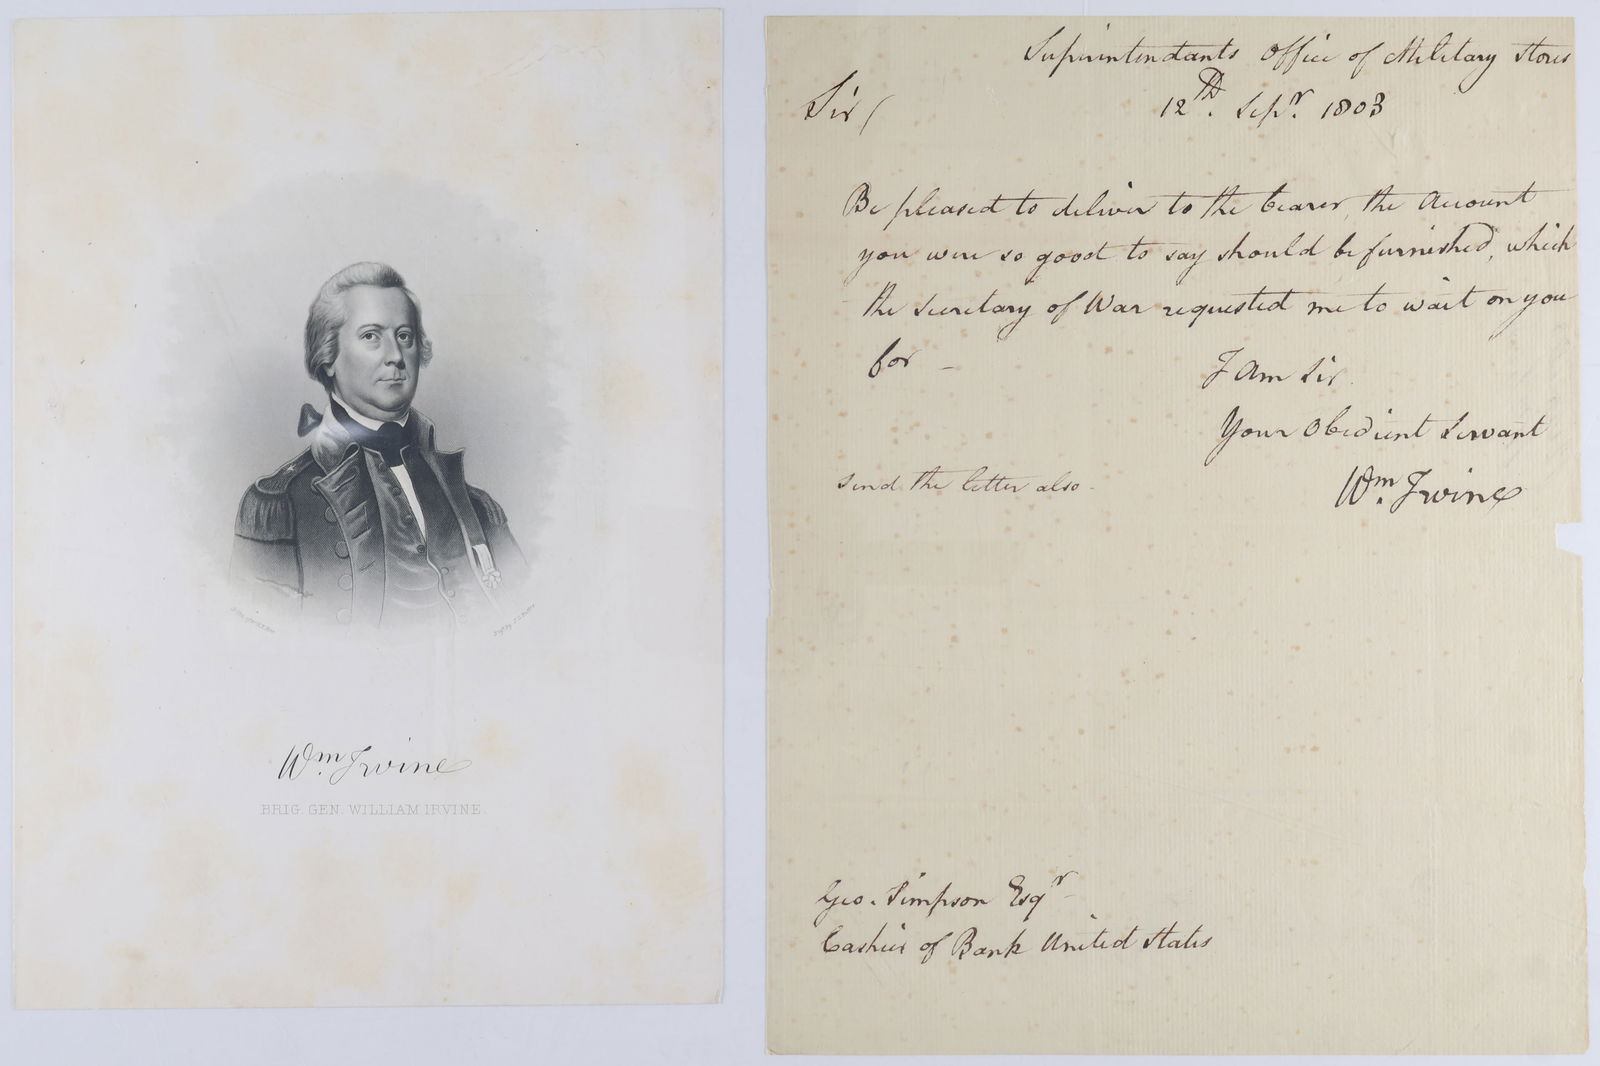 Wm. Irvine
BRIG. GEN. WILLIAM IRVINE.
Superintendants Office of Military Stores
12th. Sepr. 1803
Sir
Be pleased to deliver to the bearer, the Account
you were so good to say should be furnished, which
the Secretary of War requested me to wait on you
for —
I am Sir.
Your Obedient Servant
Wm. Irvine
send the letter also -
Geo. Simpson Esqr
Cashier of Bank United States